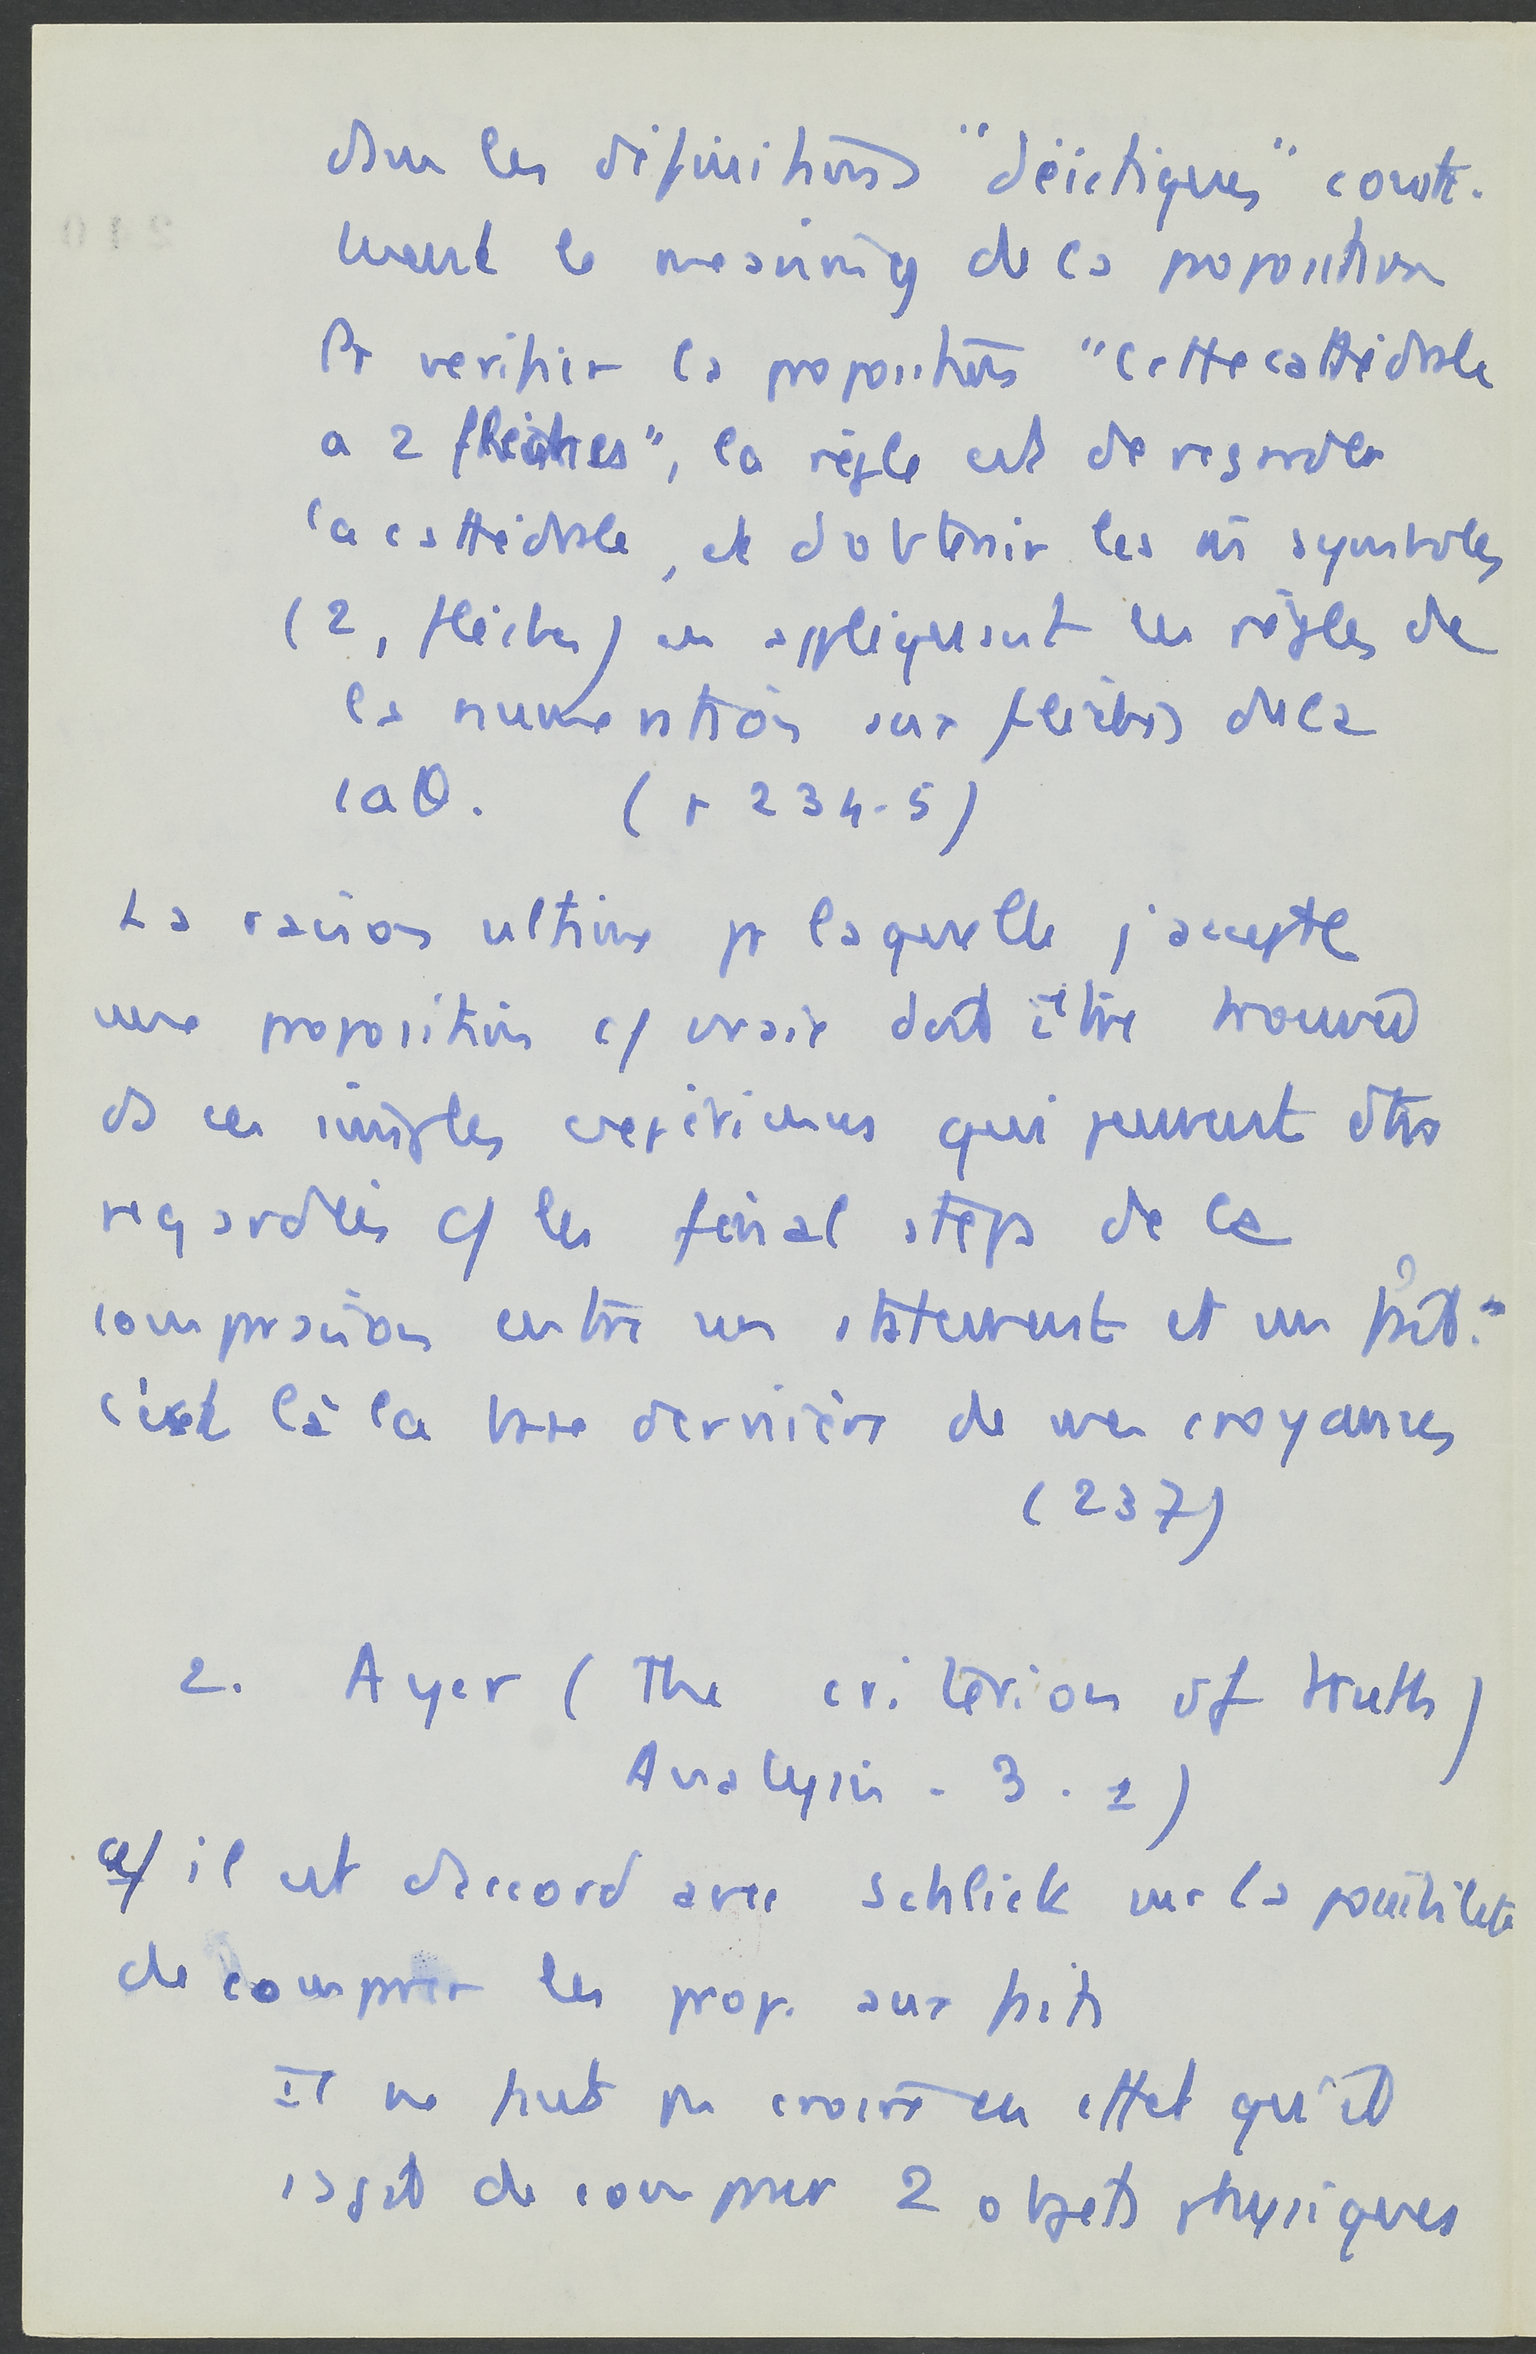 dans les définitions "déictiques" consti-
tuent le meaning de la proposition
Pr verifier la proposition "cette cathédrale
a 2 flèches", la règle est de regarder
la cathédrale, et d'obtenir les m̂ symboles
(2, flèches) en appliquant les règles de
la numération aux flèches de la
cath. (p 234-5)
La raison ultime pr laquelle j'accepte
une proposition c/ vraie doit être trouvée
ds ces simples expériences qui peuvent être
regardées c/ les final steps de la
comparaison entre un statement et un fait :
c'est là la base dernière de mes croyances
(237)
2. Ayer (The criterion of truth)
Analysis - 3. 1)
a/ il est d'accord avec Schlick sur la possibilité
de comparer les prop. aux faits
Il ne faut pas croire en effet qu'il
s'agit de comparer 2 objets physiques